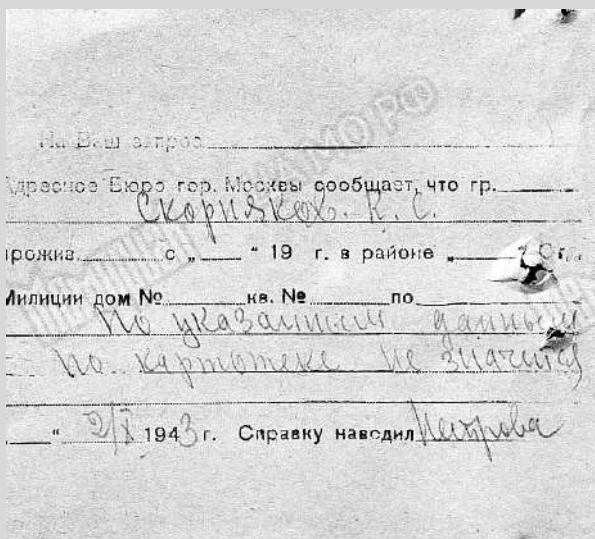 На Ваш запрос
Адресное Бюро гор. Москвы сообщает, что гр.
Скорняков. К. С.
прожив. с „ “ 19 г. в районе „ “ От.
Милиции дом № кв. № по
По указанным данным
по картотеке не значится
“ 2/X 1943 г. Справку наводил Петрова